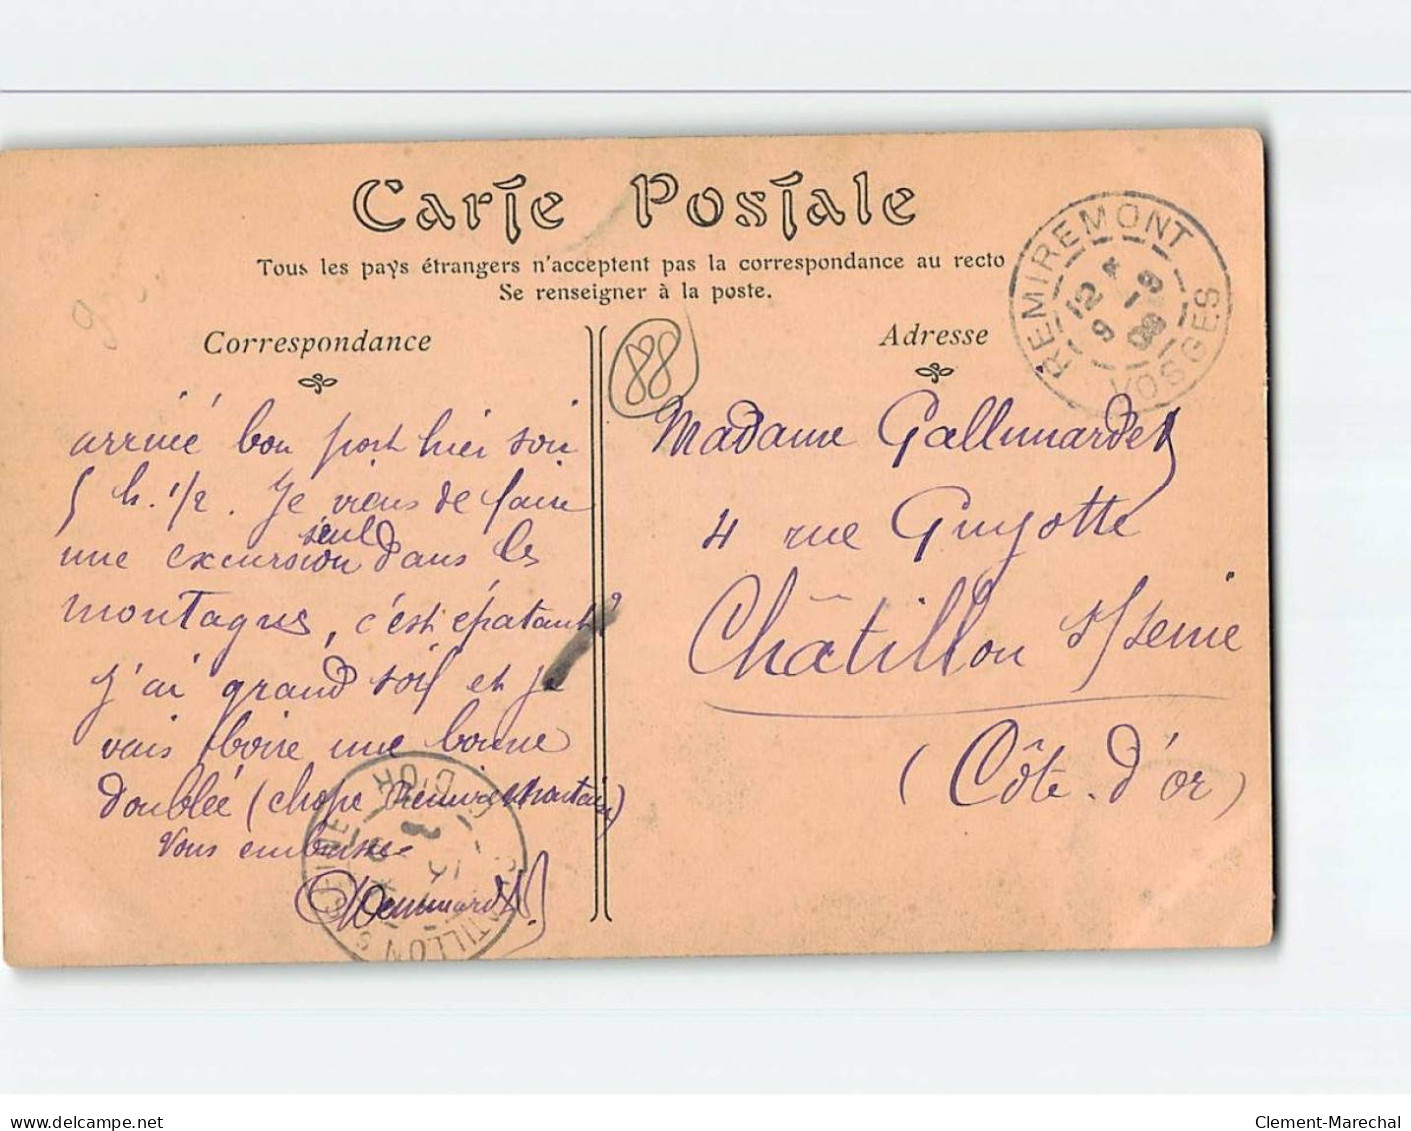 Carte Postale
Tous les pays étrangers n'acceptent pas la correspondance au recto
Se renseigner à la poste.
REMIREMONT
VOSGES
12 * 9
9 - 09
Correspondance
88
Adresse
arrivé bon port hier soir
5 h. 1/2. Je viens de faire
seul
une excursion dans les
montagnes, c'est épatant
j'ai grand soif et je
vais boire une bonne
doublée (chope Remiremontaise)
Vous embrasse
Madame Gallimardet
4 rue Guyotte
Châtillon s/seine
(Côte. d'or)
CHATILLON S SEINE
COTE D'OR
delcampe.net
Clement-Marechal